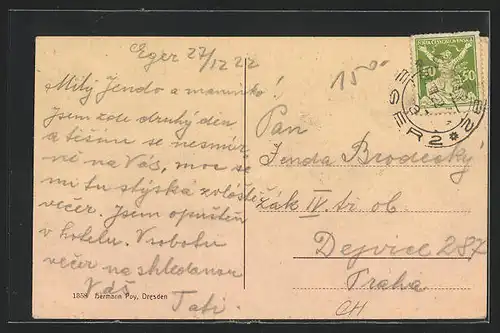 Eger 27/12 22
Milý Jendo a maminko!
Jsem zde druhý den
a těším se nesmír-
ně na Vás, moc se
mi tu stýská zvláště
večer. Jsem opuštěn
v hotelu. V sobotu
večer na shledanou
Váš
Tati.
1358 Hermann Poy, Dresden
15
POŠTA ČESKOSLOVENSKÁ
50 50
EGER 2 *
Pan
Jenda Brodecký
žák IV. tř. ob.
Dejvice 287
Praha
CH